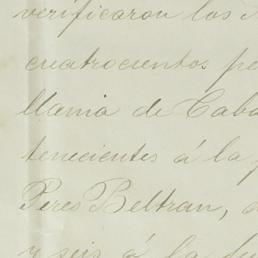 verificaron los
cuatrocientos pe
llania de Caba
tenecientes á la
Peres Beltran,
y seis á la fu